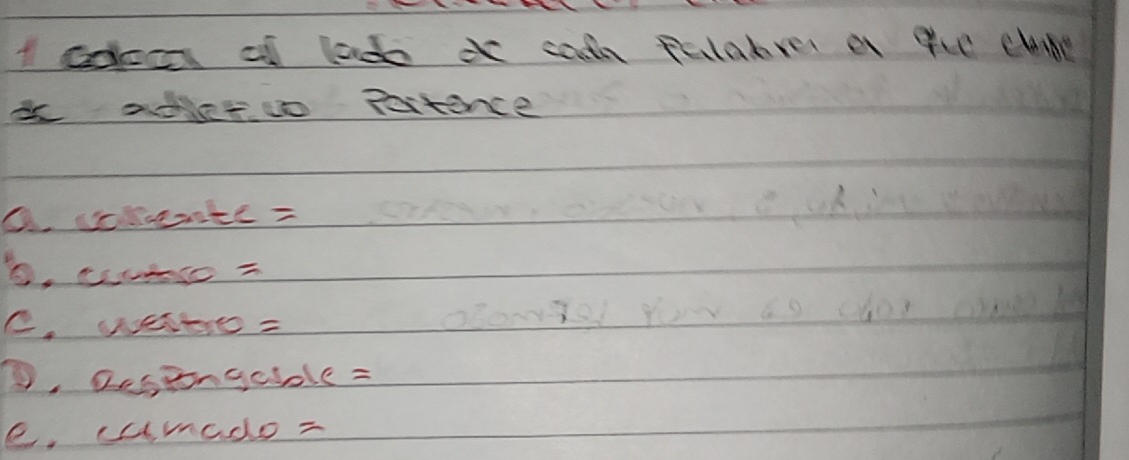 1 coloca al lado de cada Palabra a que clase
de adjetivo Pertence
a. valiente =
b. cuatro =
c. vuestro =
D. Responsable =
e.